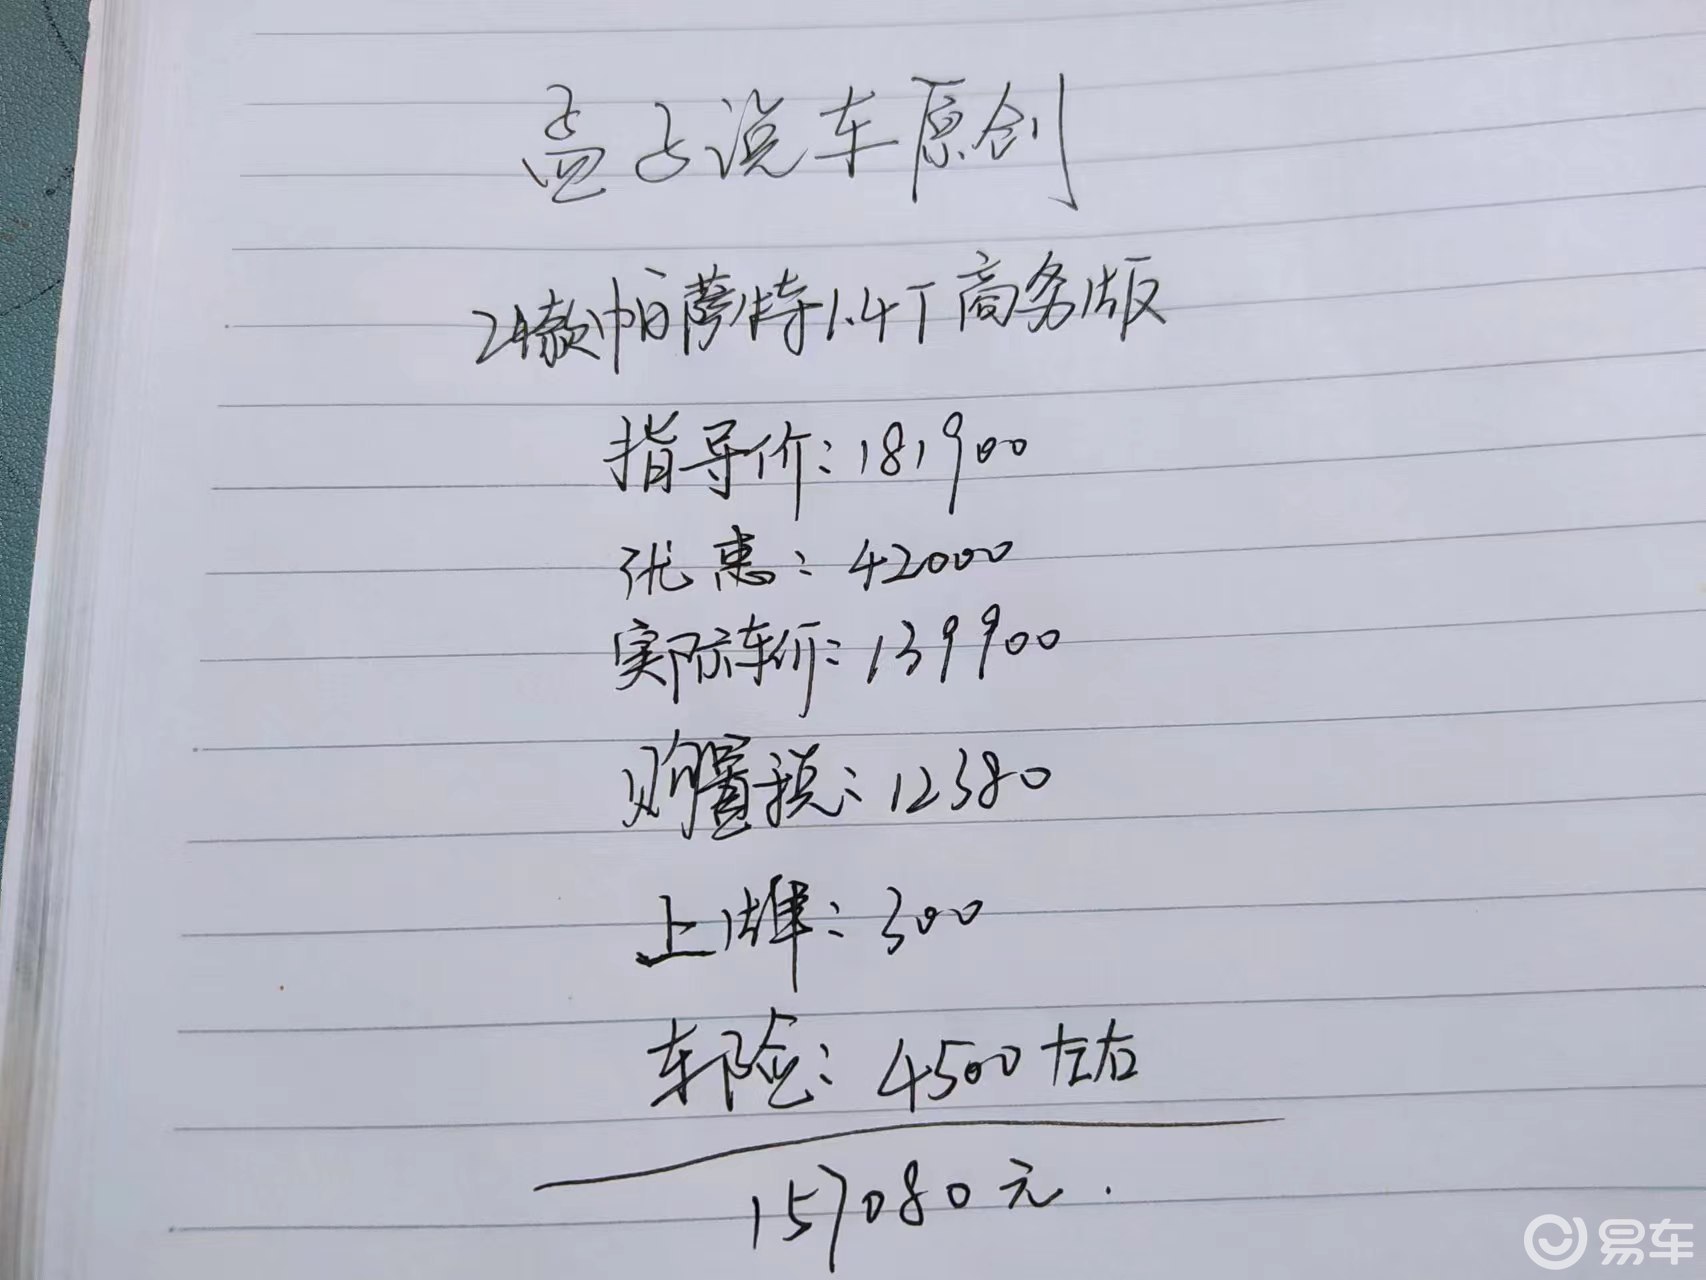 孟子说车原创
24款帕萨特1.4T商务版
指导价：181900
优惠：42000
实际车价：139900
购置税：12380
上牌：300
车险：4500左右
157080元.
易车